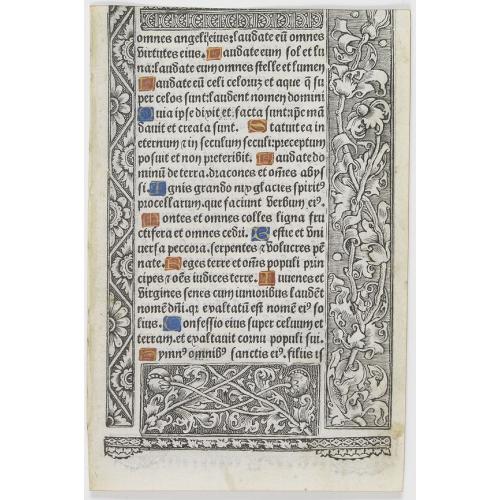 omnes angeli eius: laudate eū omnes
virtutes eius. Laudate eum sol et lu
na: laudate eum omnes stelle et lumen
Laudate eū celi celorū et aque q̄ su
per celos sunt: laudent nomen domini
Quia ipse dixit et facta sunt: ipse mā
dauit et creata sunt. Statuit ea in
eternum ⁊ in seculum seculi: preceptum
posuit et non preteribit. Laudate do
minū de terra. dracones et oēs abys
si. Ignis grando nix glacies spiritꝰ
procellarum. que faciunt verbum eiꝰ.
Montes et omnes colles ligna fru
ctifera et omnes cedri. Bestie et vni
uersa peccora. serpentes ⁊ volucres pē
nate. Reges terre et oēs populi prin
cipes ⁊ oēs iudices terre. Iuuenes et
virgines senes cum iunioribus laudēt
nomē dn̄i. qr exaltatū est nomē eiꝰ so
lius. Confessio eius super celum et
terram. et exaltauit cornu populi sui.
Hymnꝰ omnibꝰ sanctis eiꝰ. filiis is